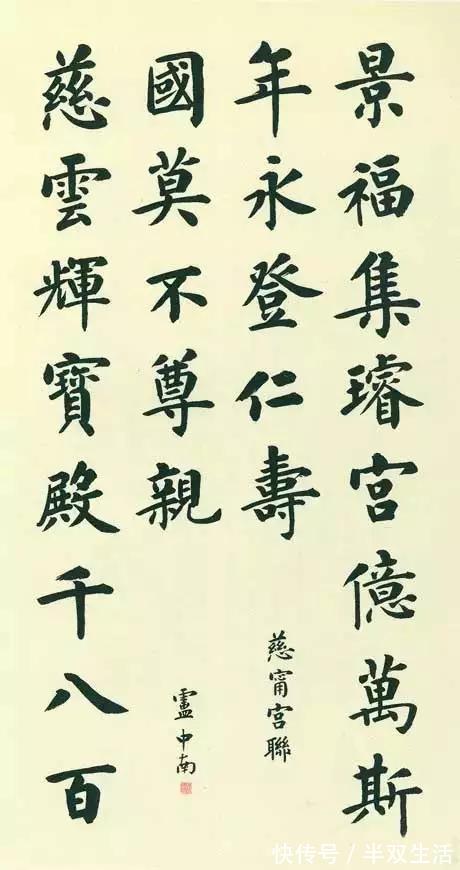 景福集璿宮億萬斯
年永登仁壽
慈甯宮聯
慈雲輝寶殿千八百
國莫不尊親
盧中南
快传号 / 半双生活